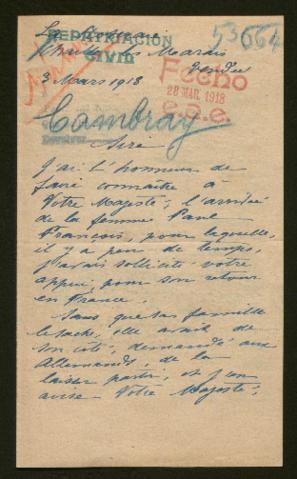 53664
REPATRIACION
CIVIL
les Marais
Vendée
3 Mars 1918
Fecho
28 MAR. 1918
Cambray
Sire
J'ai l'honneur de
faire connaître à
Votre Majesté, l'arrivée
de la femme Paul
François, pour laquelle,
il y a peu de temps,
j'avais sollicité votre
appui, pour son retour
en France.
Sans que sa famille
le sache, elle avait de
son côté, demandé aux
Allemands, de la
laisser partir, et j'en
avise Votre Majesté,